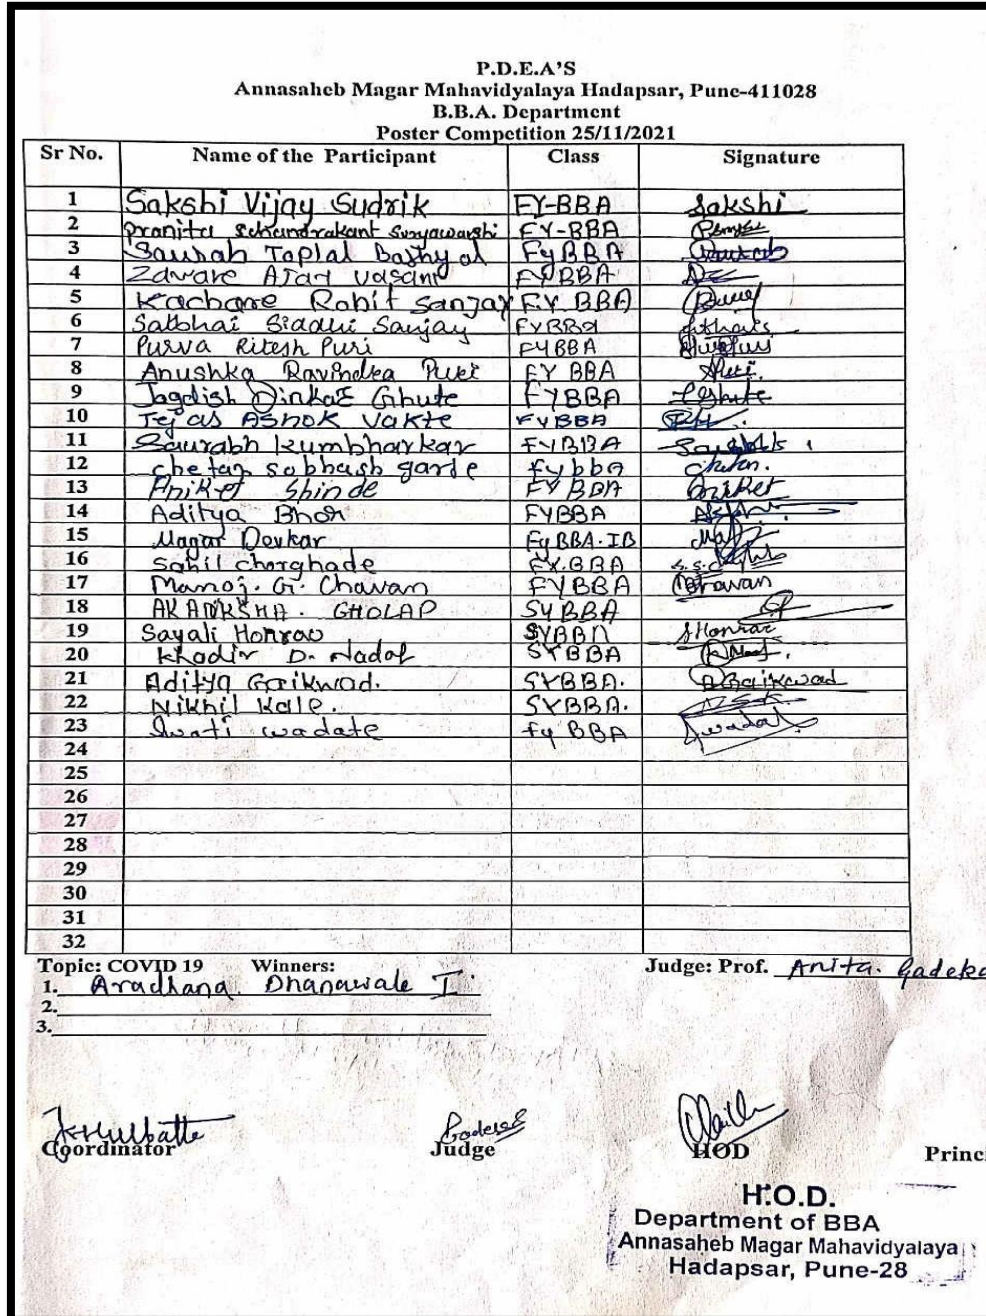 P.D.E.A'S
Annasaheb Magar Mahavidyalaya Hadapsar, Pune-411028
B.B.A. Department
Poster Competition 25/11/2021
Sr No. Name of the Participant Class Signature
1 Sakshi Vijay Sudrik FY-BBA Sakshi
2 Pranita Suryawanshi FY-BBA
3 Saurabh FyBBA
4 Zaware Ajay Vasant FYBBA
5 Kachare Rohit Sanjay F.Y. BBA
6 Salbhai Siddhi Sanjay FYBBA
7 Purva Ritesh Puri FYBBA
8 Anushka Ravindra Puri FY BBA
9 Jagdish Dinkar Ghute FYBBA
10 Tejas Ashok Vakte FYBBA
11 Saurabh Kumbharkar FYBBA
12 chetan subhash garde fybba chetan.
13 Aniket Shinde FYBBA Aniket
14 Aditya Bhor FYBBA
15 Magar Devkar FyBBA.IB
16 Sahil chorghade FY.BBA
17 Manoj. G. Chavan FYBBA Chavan
18 AKANKSHA. GHOLAP SYBBA
19 Sayali Honrao SYBBA SHonrao
20 Khadir D. Nadaf SYBBA
21 Aditya Gaikwad. SYBBA. AGaikwad
22 Nikhil Kale. SYBBA.
23 Swati wadate fy BBA
24
25
26
27
28
29
30
31
32
Topic: COVID 19 Winners: Judge: Prof. Anita. Gadeka
1. Aradhana Dhanawale I
2.
3.
Coordinator Judge HOD Princi
H.O.D.
Department of BBA
Annasaheb Magar Mahavidyalaya
Hadapsar, Pune-28